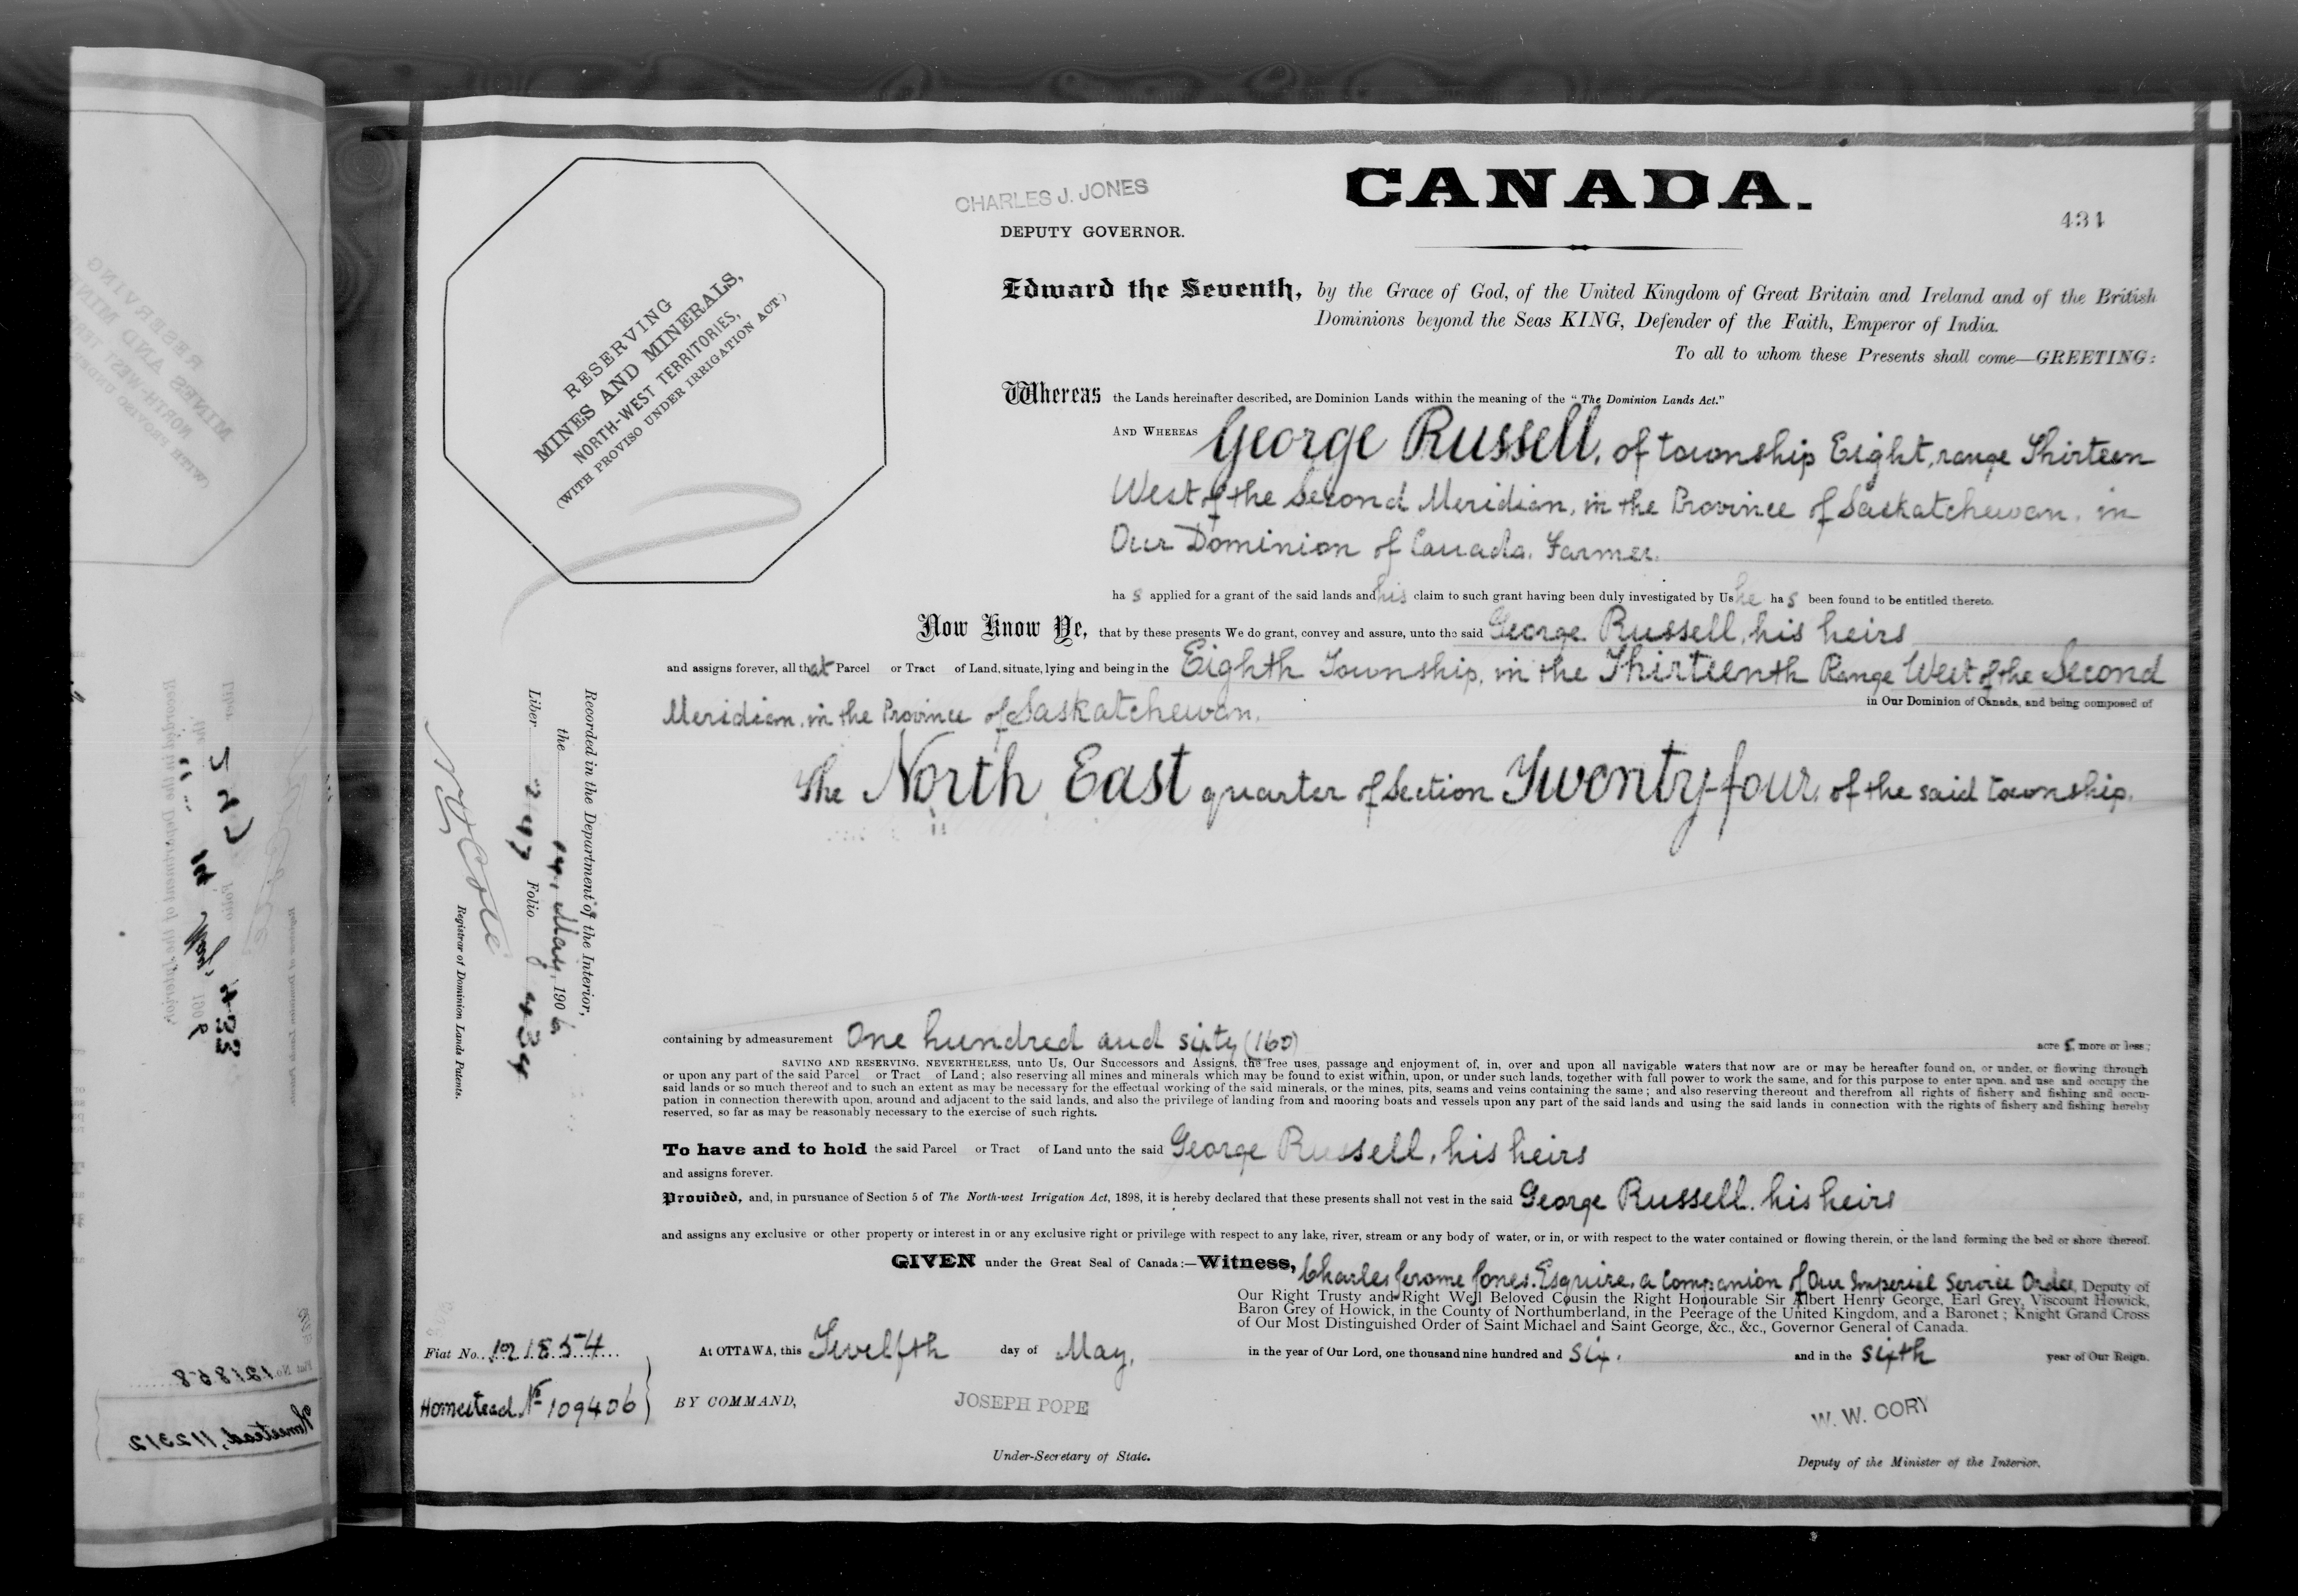 CHARLES J. JONES
DEPUTY GOVERNOR.
CANADA.
434
RESERVING
MINES AND MINERALS,
NORTH-WEST TERRITORIES,
(WITH PROVISO UNDER IRRIGATION ACT)
Edward the Seventh, by the Grace of God, of the United Kingdom of Great Britain and Ireland and of the British
Dominions beyond the Seas KING, Defender of the Faith, Emperor of India.
To all to whom these Presents shall come—GREETING:
Whereas the Lands hereinafter described, are Dominion Lands within the meaning of the "The Dominion Lands Act."
AND WHEREAS George Russell, of township Eight, range Thirteen
West of the Second Meridian, in the Province of Saskatchewan, in
Our Dominion of Canada, Farmer.
ha s applied for a grant of the said lands and his claim to such grant having been duly investigated by Us he ha s been found to be entitled thereto.
Now Know Ye, that by these presents We do grant, convey and assure, unto the said George Russell, his heirs
and assigns forever, all that Parcel or Tract of Land, situate, lying and being in the Eighth Township, in the Thirteenth Range West of the Second
Meridian, in the Province of Saskatchewan, in Our Dominion of Canada, and being composed of
The North East quarter of Section Twenty-four, of the said township.
Recorded in the Department of the Interior,
the 14, May, 1906
Liber 247 Folio 434
Registrar of Dominion Lands Patents.
containing by admeasurement One hundred and sixty (160) acre s, more or less;
SAVING AND RESERVING, NEVERTHELESS, unto Us, Our Successors and Assigns, the free uses, passage and enjoyment of, in, over and upon all navigable waters that now are or may be hereafter found on, or under, or flowing through
or upon any part of the said Parcel or Tract of Land; also reserving all mines and minerals which may be found to exist within, upon, or under such lands, together with full power to work the same, and for this purpose to enter upon, and use and occupy the
said lands or so much thereof and to such an extent as may be necessary for the effectual working of the said minerals, or the mines, pits, seams and veins containing the same; and also reserving thereout and therefrom all rights of fishery and fishing and occu-
pation in connection therewith upon, around and adjacent to the said lands, and also the privilege of landing from and mooring boats and vessels upon any part of the said lands and using the said lands in connection with the rights of fishery and fishing hereby
reserved, so far as may be reasonably necessary to the exercise of such rights.
To have and to hold the said Parcel or Tract of Land unto the said George Russell, his heirs
and assigns forever.
Provided, and, in pursuance of Section 5 of The North-west Irrigation Act, 1898, it is hereby declared that these presents shall not vest in the said George Russell, his heirs
and assigns any exclusive or other property or interest in or any exclusive right or privilege with respect to any lake, river, stream or any body of water, or in, or with respect to the water contained or flowing therein, or the land forming the bed or shore thereof.
GIVEN under the Great Seal of Canada:—Witness, Charles Jerome Jones, Esquire, a Companion of Our Imperial Service Order, Deputy of
Our Right Trusty and Right Well Beloved Cousin the Right Honourable Sir Albert Henry George, Earl Grey, Viscount Howick,
Baron Grey of Howick, in the County of Northumberland, in the Peerage of the United Kingdom, and a Baronet; Knight Grand Cross
of Our Most Distinguished Order of Saint Michael and Saint George, &c., &c., Governor General of Canada.
Fiat No. 121854
At OTTAWA, this Twelfth day of May, in the year of Our Lord, one thousand nine hundred and six, and in the sixth year of Our Reign.
Homestead No 109406
BY COMMAND,
JOSEPH POPE
Under-Secretary of State.
W. W. CORY
Deputy of the Minister of the Interior.